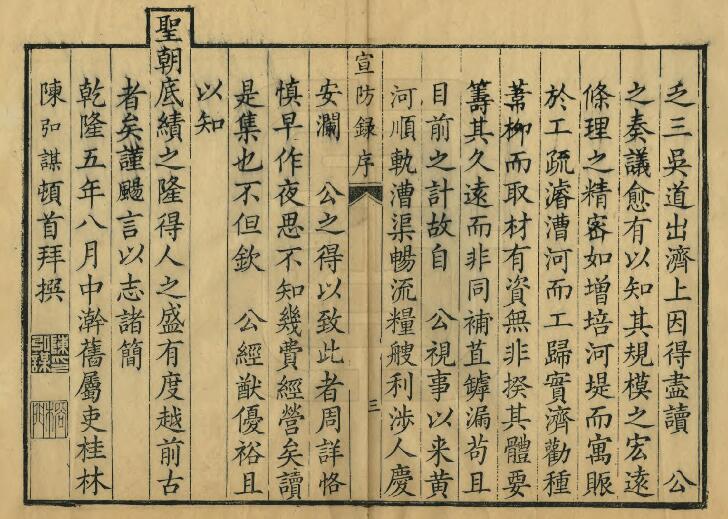 之三吳道出濟上因得盡讀　公
之奏議愈有以知其規模之宏遠
條理之精密如增培河堤而寓賑
於工疏濬漕河而工歸實濟勸種
葦柳而取材有資無非揆其體要
籌其久遠而非同補苴罅漏苟且
目前之計故自　公視事以来黄
河順軌漕渠暢流糧艘利涉人慶
宣防録序
三
安瀾　公之得以致此者周詳恪
慎早作夜思不知幾費經營矣讀
是集也不但欽　公經猷優裕且
以知
聖朝底績之隆得人之盛有度越前古
者矣謹颺言以志諸簡
乾隆五年八月中澣舊屬吏桂林
陳弘謀頓首拜撰